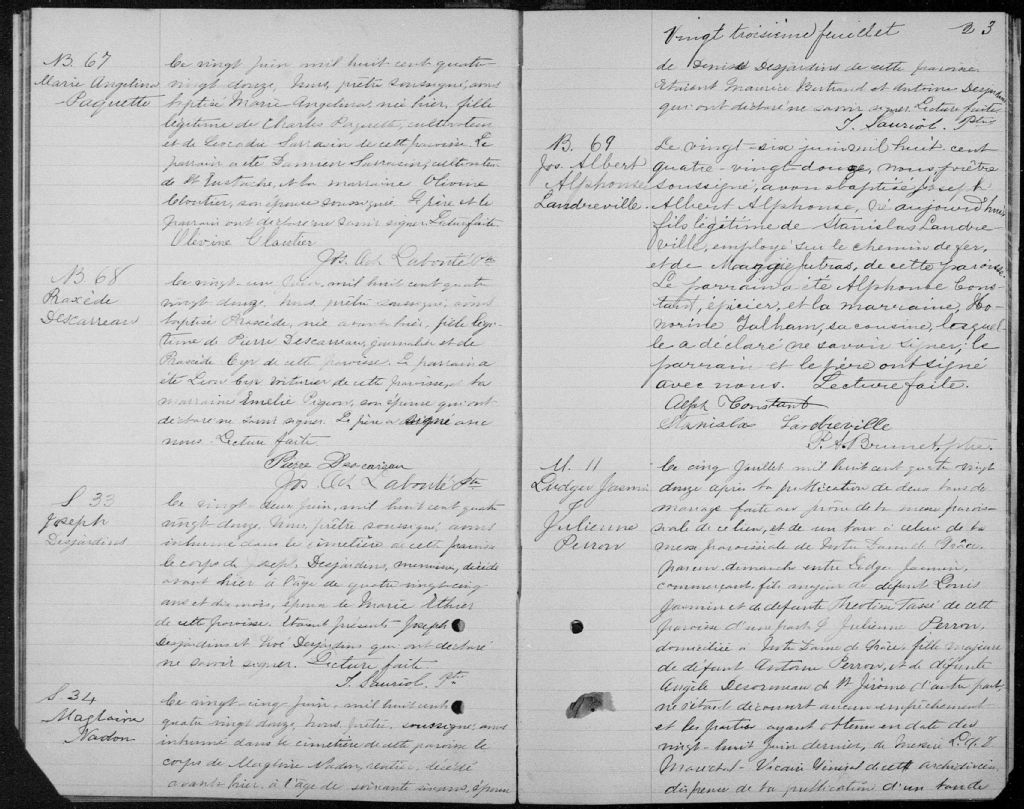 B. 67
Marie Angelina
Paquette
Ce vingt Juin mil huit cent quatre
vingt douze, Nous, prêtre soussigné, avons
baptisé Marie-Angelina, née hier, fille
légitime de Charles Paquette, cultivateur
et de Léocadie Sarrasin de cette paroisse. Le
parrain a été Damien Sarrasin, cultivateur
de St Eustache, et la marraine Olivine
Cloutier, son épouse soussignée. Le père et le
parrain ont déclaré ne savoir signer. Lecture faite.
Olivine Cloutier
Jos. Och. Labonté Ptre
B. 68
Praxède
Descarreau
Ce vingt-un Juin, mil huit cent quatre
vingt douze, Nous, prêtre soussigné, avons
baptisé Praxède, née avant hier, fille légi-
time de Pierre Descarreau, journalier et de
Praxède Cyr de cette paroisse. Le parrain a
été Léon Cyr voiturier de cette paroisse et la
marraine Emélie Pigeon, son épouse qui ont
déclaré ne savoir signer. Le père a signé avec
nous. Lecture faite.
Pierre Descareau
Jos. Och. Labonté Ptre
S 33
Joseph
Desjardins
Ce vingt deux juin, mil huit cent quatre
vingt douze, Nous, prêtre soussigné, avons
inhumé dans le cimetière de cette paroisse
le corps de Joseph Desjardins, menuisier, décédé
avant hier à l'âge de quatre vingt-cinq
ans et dix mois, époux de Marie Ethier
de cette paroisse. Etaient présents Joseph
Desjardins et Noé Desjardins qui ont déclaré
ne savoir signer. Lecture faite.
T. Sauriol. Ptre
S 34
Magloire
Nadon
Ce vingt cinq Juin, mil huit cent
quatre vingt douze, Nous, prêtre, soussigné, avons
inhumé dans le cimetière de cette paroisse le
corps de Magloire Nadon, rentier, décédé
avant hier, à l'âge de soixante six ans, époux
Vingt troisième feuillet 23
de Denise Desjardins de cette paroisse.
Etaient Maurice Bertrand et Antoine Desjardins
qui ont déclaré ne savoir signer. Lecture faite
T. Sauriol. Ptre
B. 69
Jos. Albert
Alphonse
Landreville.
Le vingt-six juin mil huit cent
quatre-vingt-douze, nous, prêtre
soussigné, avons baptisé Joseph
Albert Alphonse, né aujourd'hui
fils légitime de Stanislas Landre-
ville, employé sur le chemin de fer,
et de Maggie Jutras, de cette paroisse.
Le parrain a été Alphonse Cons-
tant, épicier, et la marraine, Ho-
norine Talham, sa cousine, laquel-
le a déclaré ne savoir signer; le
parrain et le père ont signé
avec nous. Lecture faite.
Alph Constant
Stanislas Landreville
P. A. Brunet, ptre.
M. 11
Ludger Jasmin
et
Julienne
Perron
Ce cinq Juillet mil huit cent quatre vingt
douze après la publication de deux bans de
mariage faite au prône de la messe parois-
siale de ce lieu, et de un ban à celui de la
messe paroissiale de Notre Dame de Grâce,
dimanche entre Ludger Jasmin,
commerçant, fils majeur de défunt Louis
Jasmin et de défunte Théotiste Tassé de cette
paroisse d'une part & Julienne Perron,
domiciliée à Notre Dame de Grâce, fille majeure
de défunt Antoine Perron, et de défunte
Angèle Desormeau de St Jérôme d'autre part,
ne s'étant découvert aucun empêchement
et les parties ayant obtenu en date du
vingt-huit Juin dernier, de Messire L. D. A.
Maréchal Vicaire Général de cet archidiocèse,
dispense de la publication d'un ban de